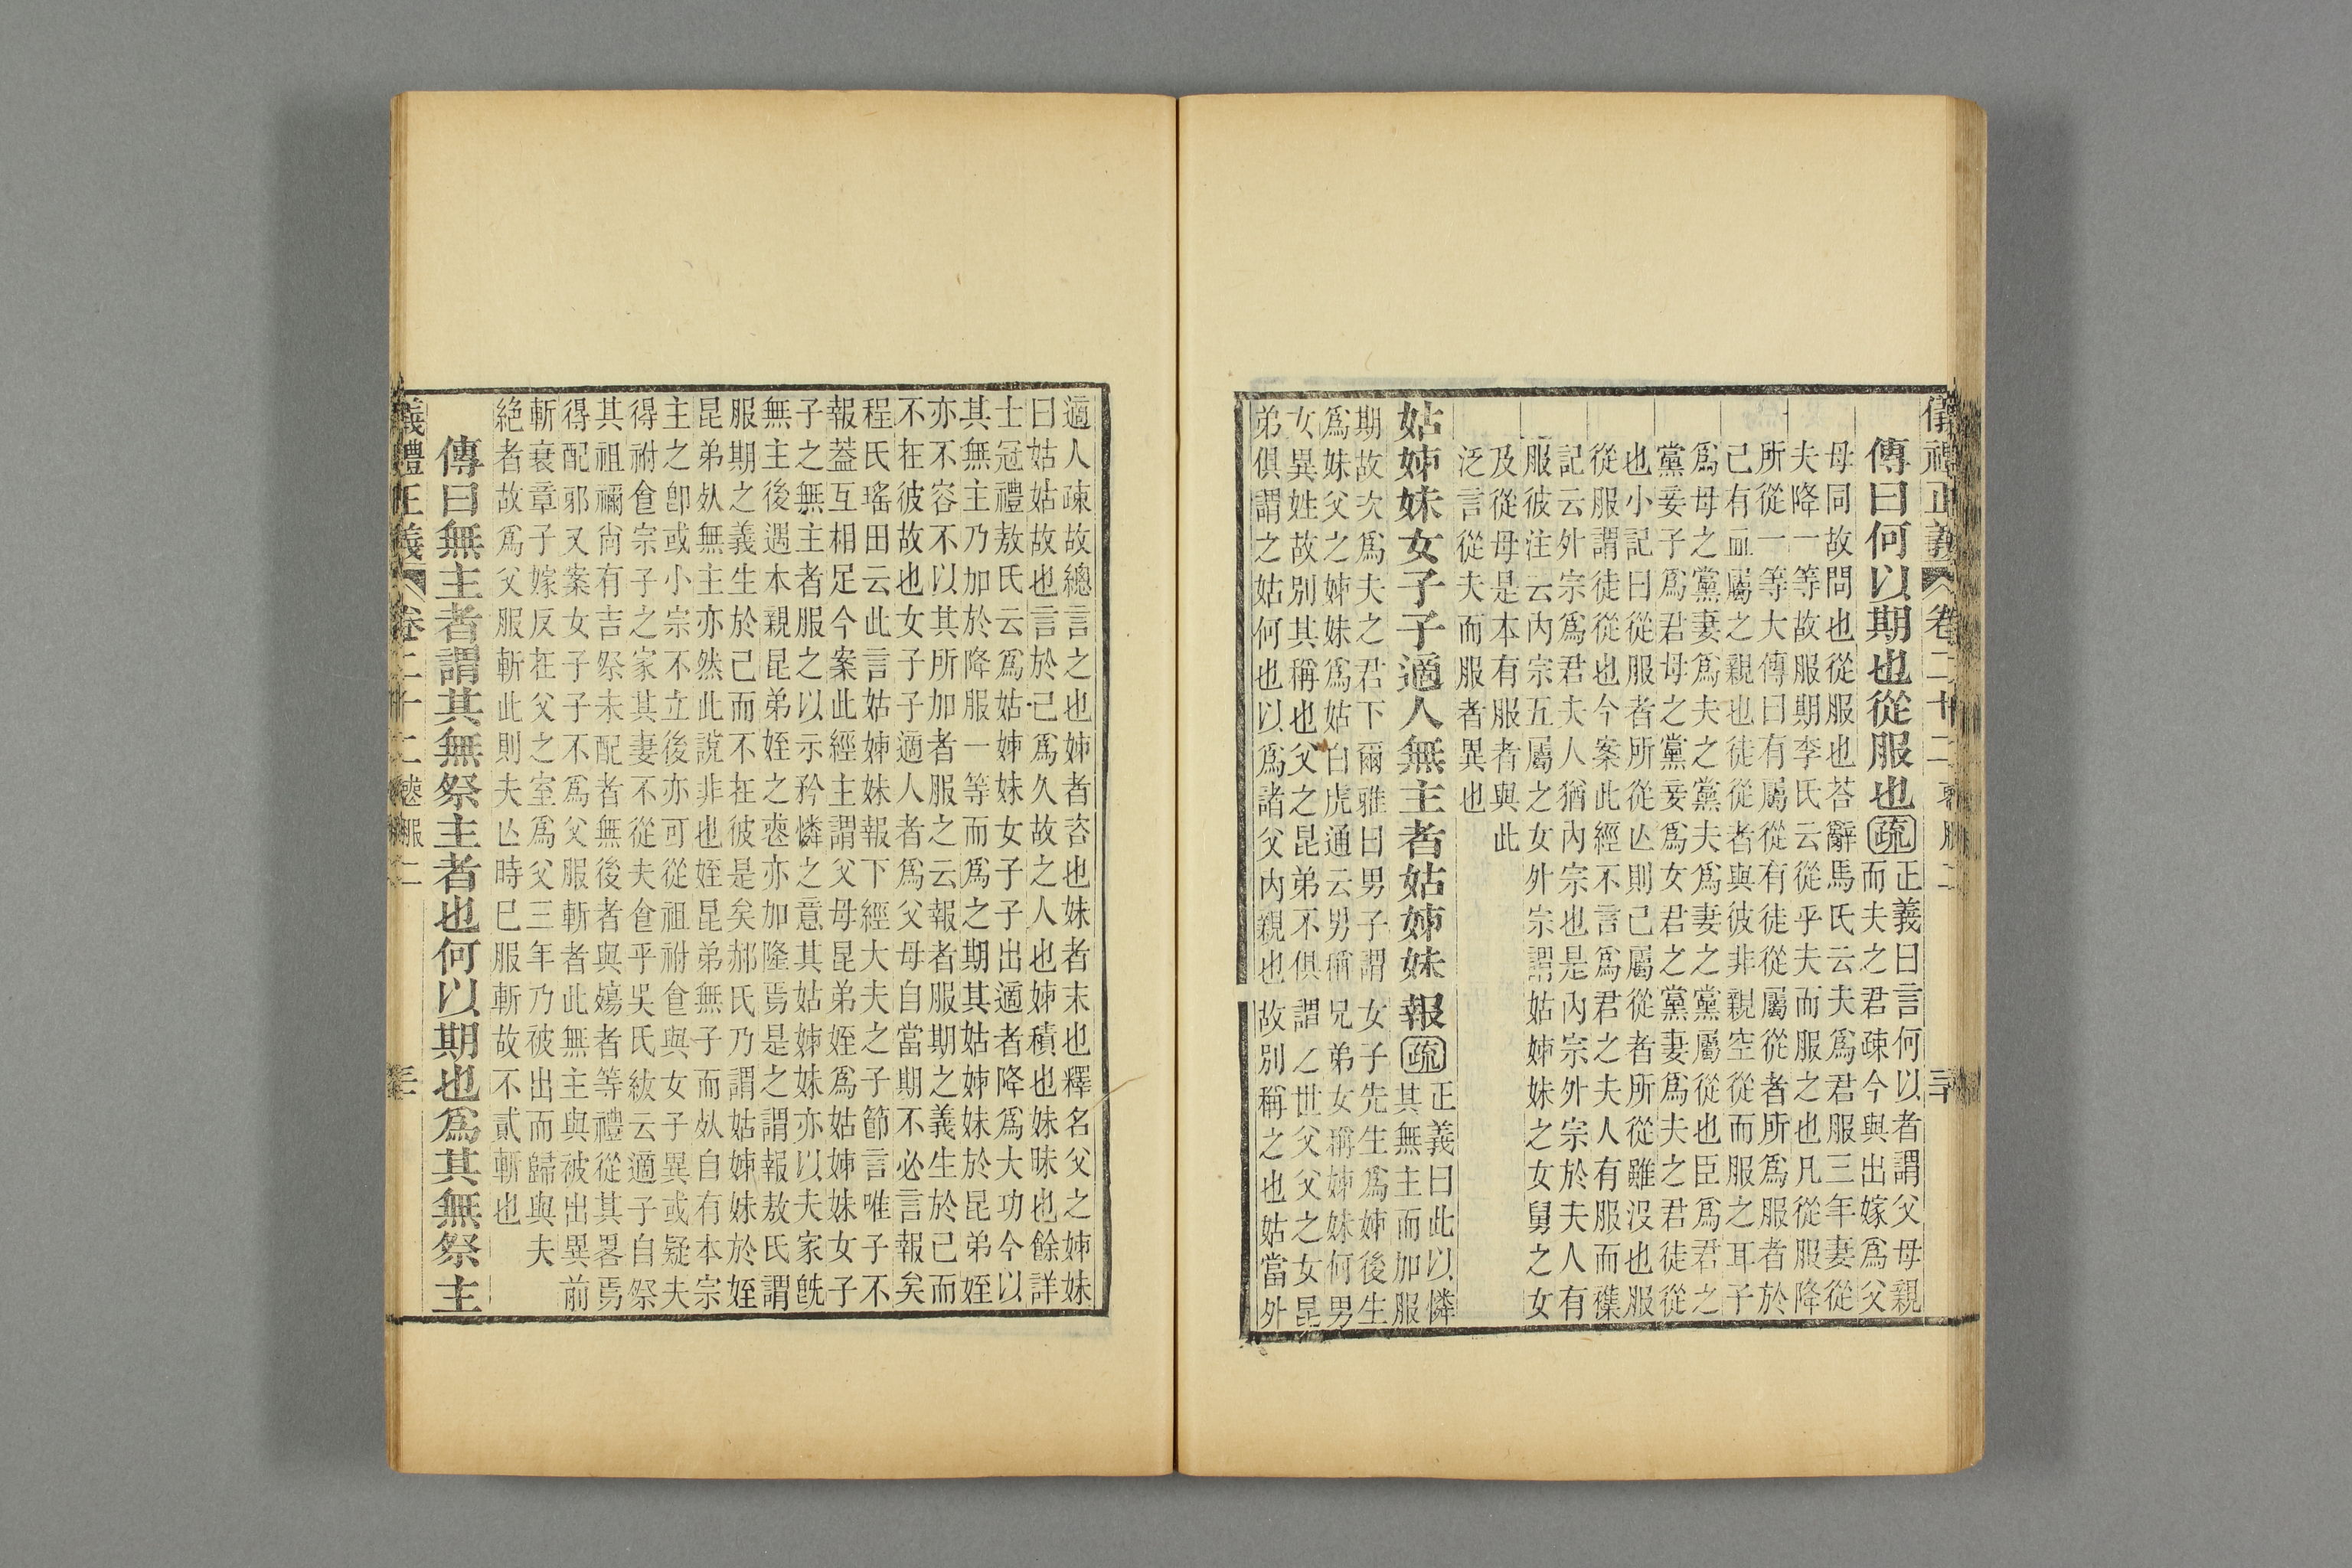 儀禮正義 卷二十二 喪服二 三
傳曰何以期也從服也 疏 正義曰言何以者謂父母親
而夫之君疎今與出嫁爲父
母同故問也從服也荅辭馬氏云夫爲君服三年妻從
夫降一等故服期李氏云從乎夫而服之也凡從服降
所從一等大傳曰有屬從有徒從屬從者所爲服者於
己有血屬之親也徒從者與彼非親空從而服之耳子
爲母之黨妻爲夫之黨夫爲妻之黨屬從也臣爲君之
黨妾子爲君母之黨妾爲女君之黨妻爲夫之君徒從
也小記曰從服者所從亾則已屬從者所從雖沒也服
從服謂徒從也今案此經不言爲君之夫人有服而襍
記云外宗爲君夫人猶內宗也是內宗外宗於夫人有
服彼注云內宗五屬之女外宗謂姑姊妹之女舅之女
及從母是本有服者與此
泛言從夫而服者異也
姑姊妹女子子適人無主者姑姊妹報 疏 正義曰此以憐
其無主而加服
期故次爲夫之君下爾雅曰男子謂女子先生爲姊後生
爲妹父之姊妹爲姑白虎通云男稱兄弟女稱姊妹何男
女異姓故別其稱也父之昆弟不俱謂之世父父之女昆
弟俱謂之姑何也以爲諸父內親也故別稱之也姑當外
適人疎故總言之也姊者咨也妹者末也釋名父之姊妹
曰姑姑故也言於己爲久故之人也姊積也妹昧也餘詳
士冠禮敖氏云爲姑姊妹女子子出適者降爲大功今以
其無主乃加於降服一等而爲之期其姑姊妹於昆弟姪
亦不容不以其所加者服之云報者服期之義生於已而
不在彼故也女子子適人者爲父母自當期不必言報矣
程氏瑤田云此言姑姊妹報下經大夫之子節言唯子不
報葢互相足今案此經主謂父母昆弟姪爲姑姊妹女子
子之無主者服之以示矜憐之意其姑姊妹亦以夫家旣
無主後遇本親昆弟姪之喪亦加隆焉是之謂報敖氏謂
服期之義生於己而不在彼是矣郝氏乃謂姑姊妹於姪
昆弟死無主亦然此說非也姪昆弟無子而死自有本宗
主之卽或小宗不立後亦可從祖祔食與女子異或疑夫
得祔食宗子之家其妻不從夫食乎吳氏紱云適子自祭
其祖禰尙有吉祭未配者無後者與殤者等禮從其畧焉
得配邪又案女子子不爲父服斬者此無主與被出異前
斬衰章子嫁反在父之室爲父三年乃被出而歸與夫
絶者故爲父服斬此則夫亾時已服斬故不貳斬也
傳曰無主者謂其無祭主者也何以期也爲其無祭主
儀禮正義 卷二十二 喪服二 三